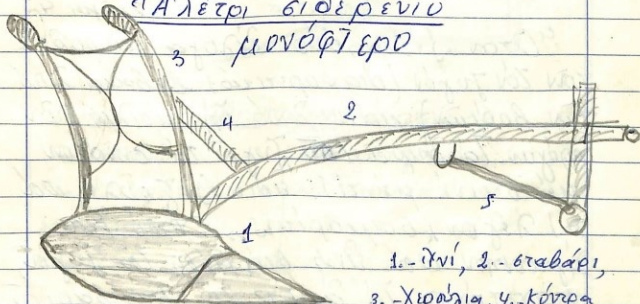 Αλετρι σιδερενιο
μονόφτερο
3
4
2
1
5
1.- υνί, 2.- σταβάρι,
3.- Χερούλια, 4.- κόντρα